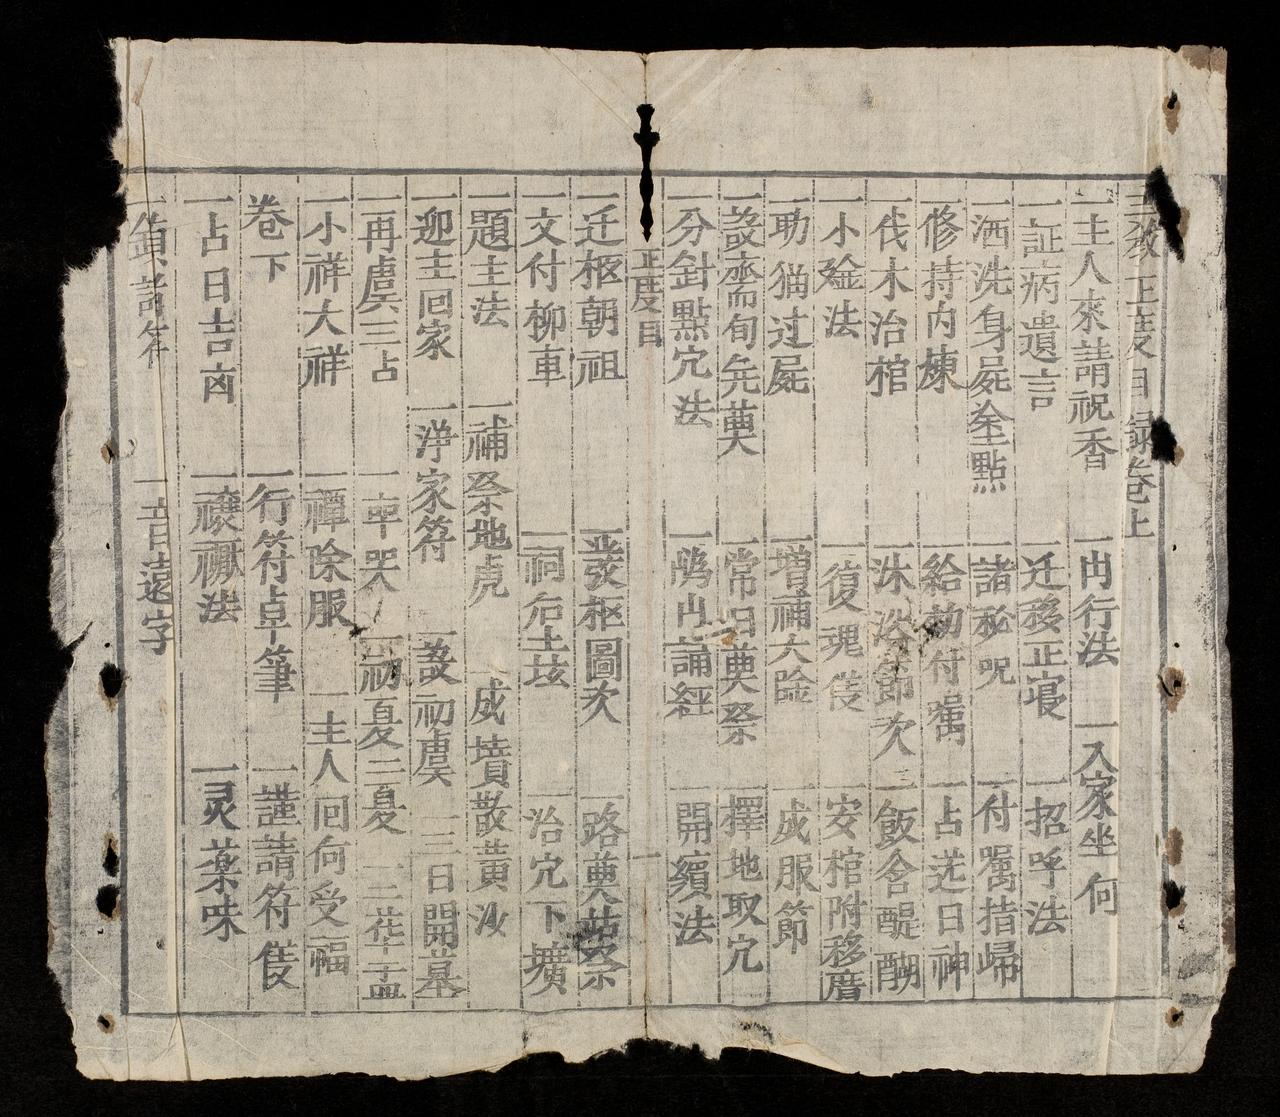 三教正度目録卷上
一主人來請祝香 一出行法 一入家坐向
一証病遺言 一迁移正寝 一招呼法
一洒洗身屍塗點 一諸秘呪 一付嘱指歸
一修持内煉 一給勅付嘱 一占茫日神
一伐木治棺 一沐浴節次 一飯含醍醐
一小殮法 一復魂儀 一安棺附移厝
一助猫过屍 一增補大殮 一成服節
一設齋旬先奠 一常日奠祭 一擇地取穴
一分針點穴法 一鴈出誦經 一開鑛法
正度目 一
一迁柩朝祖 一發柩圖次 一路奠姑祭
一文付柳車 一祠后土垓 一治穴下壙
一題主法 一補祭地虎 一成墳散黄沙
一迎主回家 一净家符 一設初虞 一三日開墓
一再虞三占 一卒哭 一初憂二憂 一三花盂
一小祥大祥 一禫除服 一主人回向受福
卷下 一行符卓筆 一謹請符儀
一占日吉凶 一禳禍法 一灵薬味
一鎮諸符 一音遠字